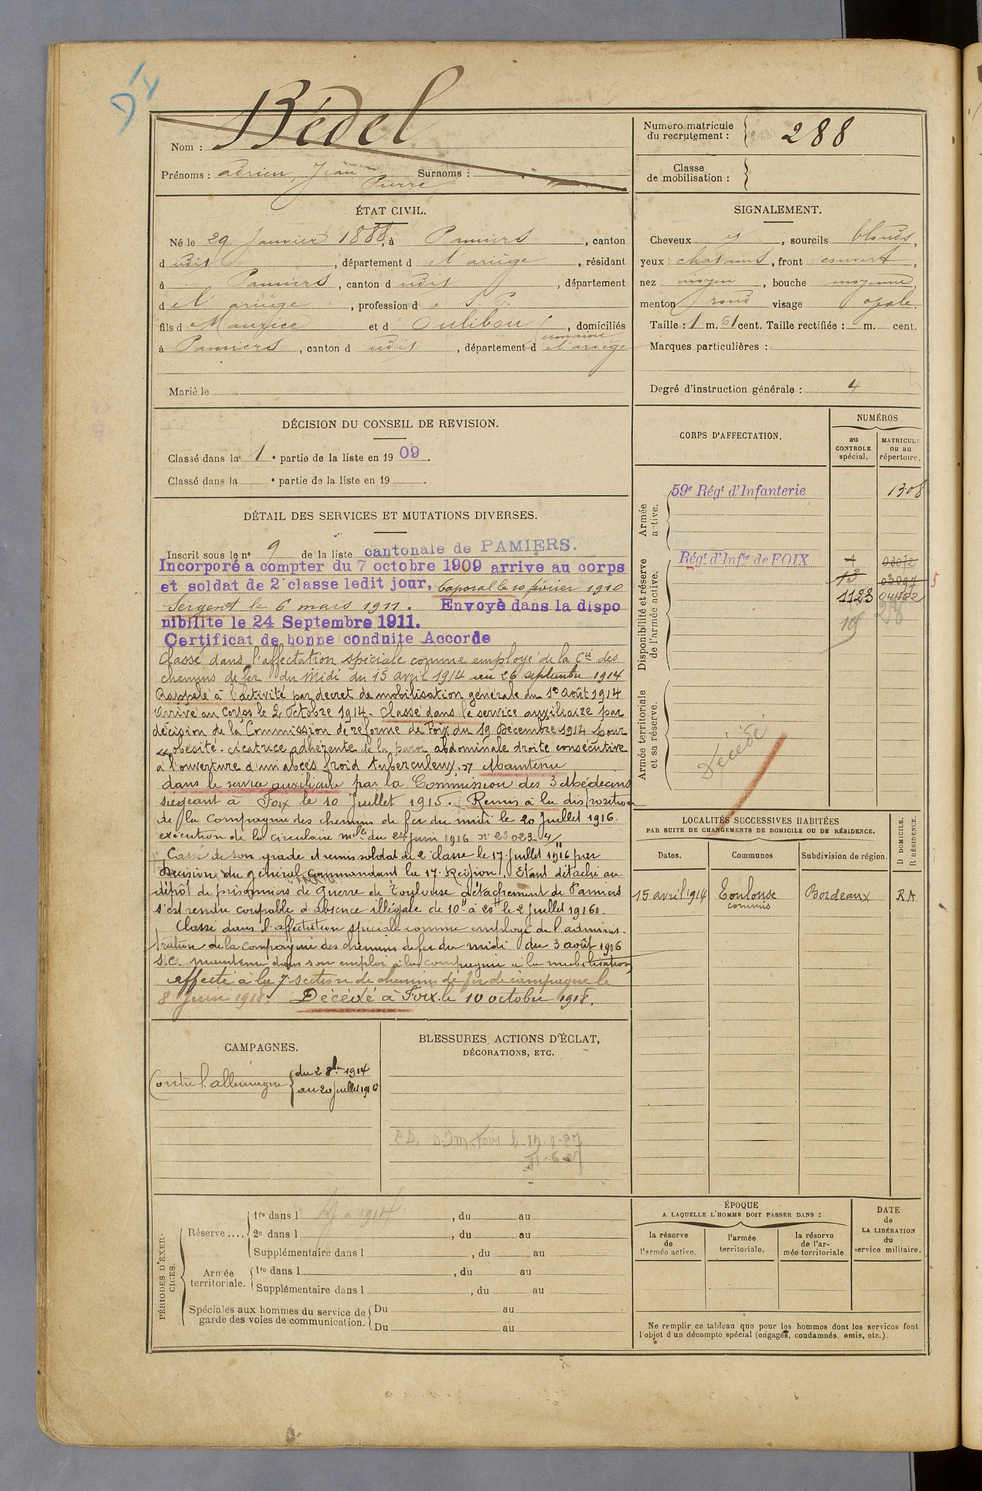 Nom : Bédel
Prénoms : Adrien Jean Surnoms :
Pierre
Numéro matricule
du recrutement : 288
Classe
de mobilisation :
ÉTAT CIVIL.
Né le 29 Janvier 1888, à Pamiers, canton
d udit, département d e l'Ariège, résidant
à Pamiers, canton d udit, département
d e l'Ariège, profession d e S. P.
fils d e Maurice et d Oulibou Germaine, domiciliés
à Pamiers, canton d udit, département d e l'Ariège
Marié le
SIGNALEMENT.
Cheveux et, sourcils blonds,
yeux chatains, front couvert,
nez moyen, bouche moyenne,
menton rond visage ovale.
Taille : 1 m. 61 cent. Taille rectifiée : m. cent.
Marques particulières :
Degré d'instruction générale : 4
DÉCISION DU CONSEIL DE REVISION.
Classé dans la 1 e partie de la liste en 1909.
Classé dans la e partie de la liste en 19 .
DÉTAIL DES SERVICES ET MUTATIONS DIVERSES.
Inscrit sous le n° 9 de la liste cantonale de PAMIERS.
Incorporé a compter du 7 octobre 1909 arrive au corps
et soldat de 2e classe ledit jour, Caporal le 10 février 1910
Sergent le 6 mars 1911. Envoyé dans la dispo
nibilité le 24 Septembre 1911.
Certificat de bonne conduite Accordé
Classé dans l'affectation spéciale comme employé de la Cie des
chemins de fer du Midi du 15 avril 1914 au 26 septembre 1914
Rappelé à l'activité par décret de mobilisation générale du 1er Août 1914
Arrivé au Corps le 2 Octobre 1914. Classé dans le service auxiliaire par
décision de la Commission de réforme de Foix du 19 Décembre 1914 pour
obésité - cicatrice adhérente de la paroi abdominale droite consécutive
à l'ouverture d'un abcès froid tuberculeux. Maintenu
dans le service auxiliaire par la Commission des 3 Médecins
siégeant à Foix le 10 Juillet 1915. Remis à la disposition
de la Compagnie des chemins de fer du midi le 20 Juillet 1916.
exécution de la circulaire mlle du 24 Juin 1916 n° 23023 4/11
Cassé de son grade et remis soldat de 2e classe le 17 Juillet 1916 par
Décision du général commandant la 17e Région. Etant détaché au
dépôt de prisonniers de Guerre de Toulouse détachement de Pamiers
s'est rendu coupable d'absence illégale de 10h à 20h le 2 Juillet 1916.
Classé dans l'affectation spéciale comme employé de l'adminis-
tration de la Compagnie des chemins de fer du midi du 3 août 1916
S.C. maintenu dans son emploi à la compagnie à la mobilisation
affecté à la 7e section de chemins de fer de campagne le
8 Juin 1918. Décédé à Foix le 10 octobre 1918.
CORPS D'AFFECTATION.
NUMÉROS
au
CONTROLE
spécial.
MATRICULE
ou au
répertoire.
Armée
active.
59e Régt d'Infanterie 1308
Disponibilité et réserve
de l'armée active.
Régt d'Infie de FOIX
13
1123
Armée territoriale
et sa réserve.
Décédé
LOCALITÉS SUCCESSIVES HABITÉES
PAR SUITE DE CHANGEMENTS DE DOMICILE OU DE RÉSIDENCE.
Dates. Communes Subdivision de région. D DOMICILE. R RÉSIDENCE.
15 avril 1914 Toulouse Bordeaux RA
commis
CAMPAGNES.
Contre l'allemagne du 2 8bre 1914
au 20 Juillet 1916
BLESSURES, ACTIONS D'ÉCLAT,
DÉCORATIONS, ETC.
PÉRIODES D'EXERCICES.
Réserve .... 1re dans l , du au
2e dans l , du au
Supplémentaire dans l , du au
Armée
territoriale. 1re dans l , du au
Supplémentaire dans l , du au
Spéciales aux hommes du service de
garde des voies de communication. Du au
Du au
ÉPOQUE
A LAQUELLE L'HOMME DOIT PASSER DANS :
la réserve
de
l'armée active.
l'armée
territoriale.
la réserve
de l'ar-
mée territoriale
DATE
de
LA LIBÉRATION
du
service militaire.
Ne remplir ce tableau que pour les hommes dont les services font
l'objet d'un décompte spécial (engagés, condamnés, omis, etc.).